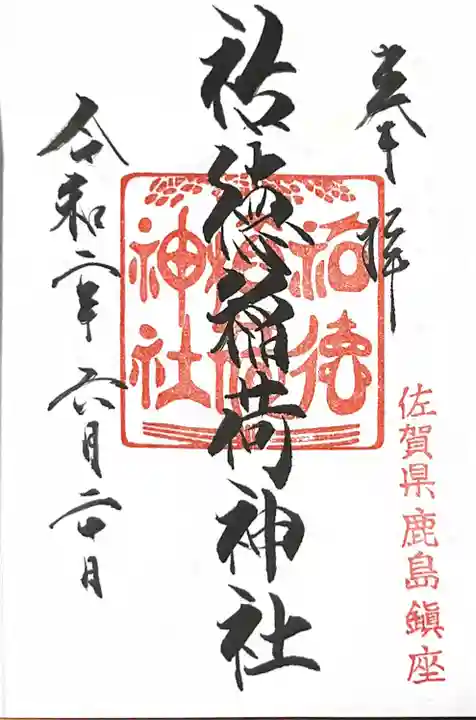 奉拝
佐賀県鹿島鎭座
祐徳稲荷神社
祐徳
稲荷
神社
令和二年六月二十日